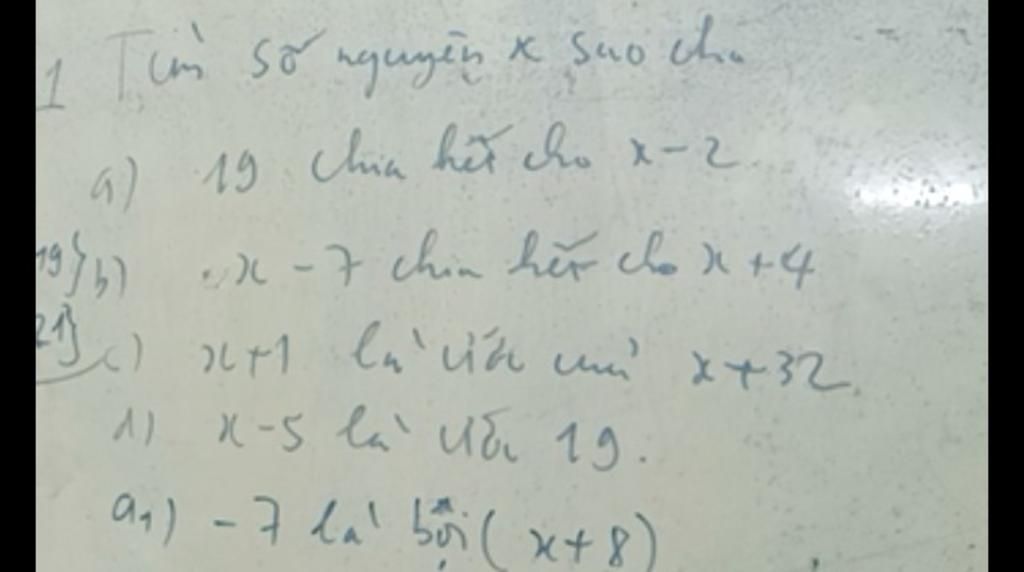 1 Tìm số nguyên x sao cho
a) 19 chia hết cho x-2
19} b) x - 7 chia hết cho x + 4
21} c) x+1 là ước của x + 32
1) x-5 là ước 19.
a1) -7 là bội (x+8)